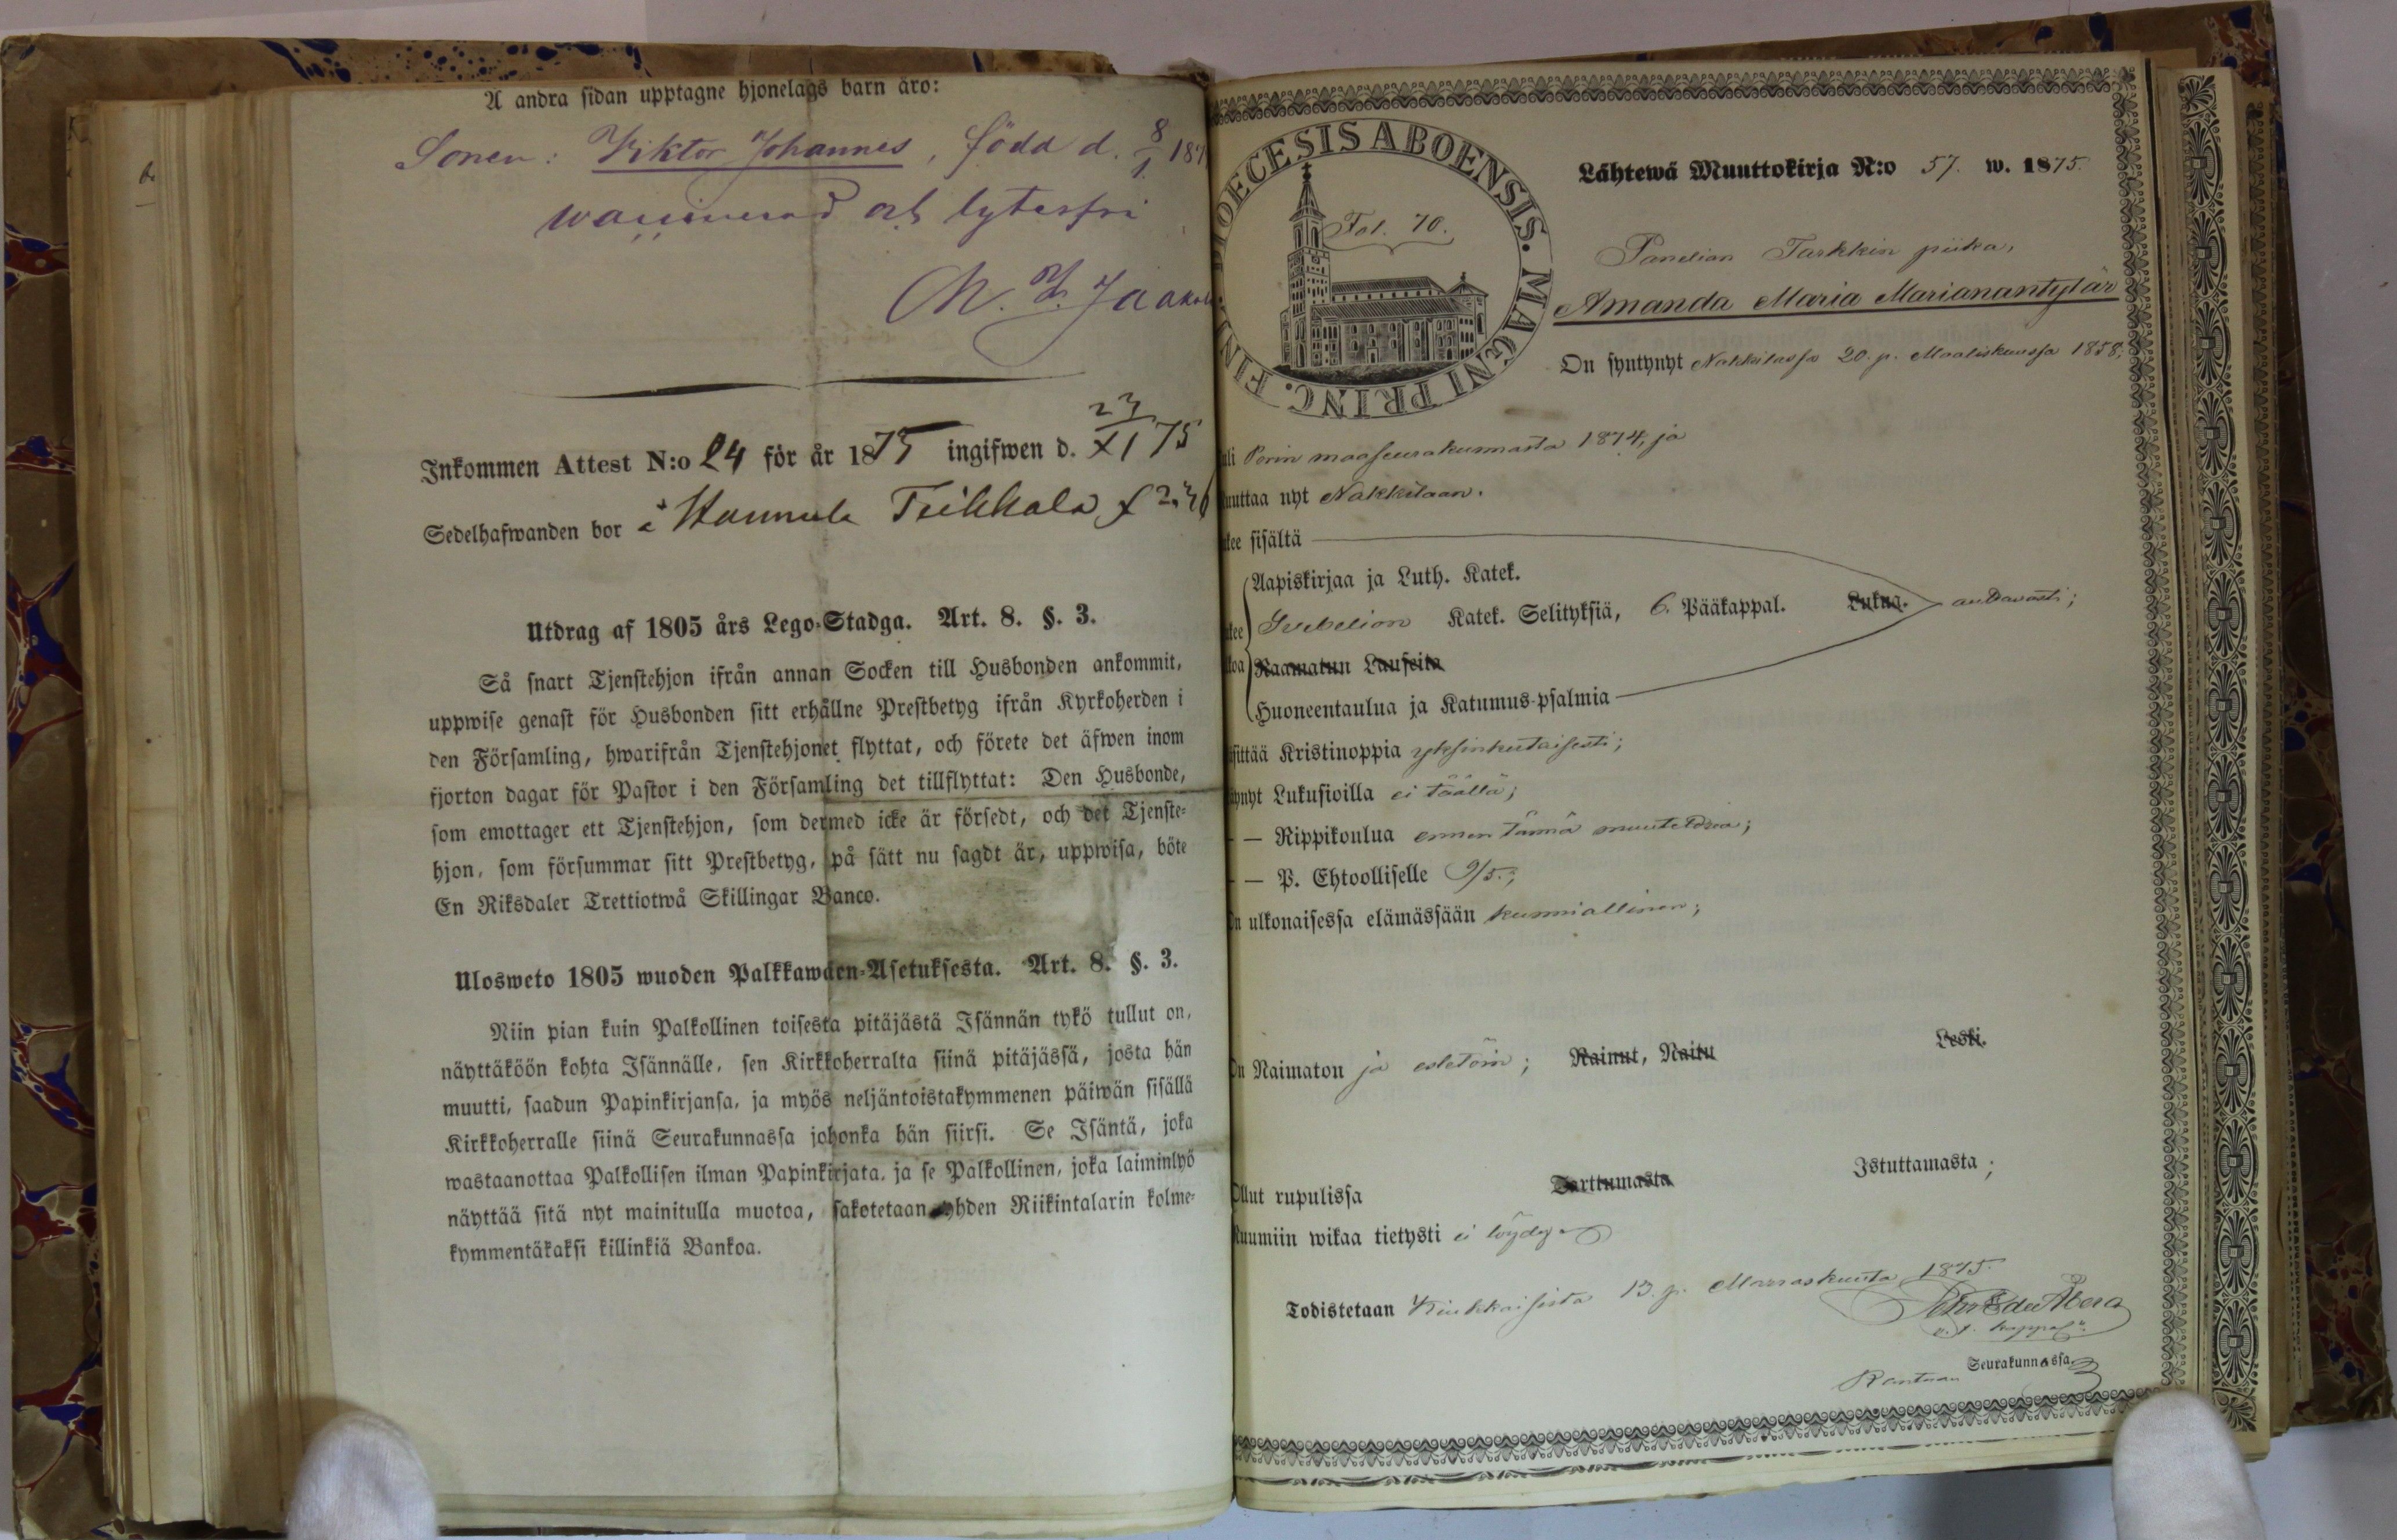 A andra sidan upptagne hjonelags barn äro:
Sonen: Viktor Johannes, född d. 8/1 187
waccinerad och lytesfri
Inkommen Attest N:o 24 för år 1875 ingifwen d. 23/XI 75
Sedelhafwanden bor å Hannula Teikkala f 236
Utdrag af 1805 års Lego-Stadga. Art. 8. §. 3.
Så snart Tjenstehjon ifrån annan Socken till Husbonden ankommit,
uppwise genast för Husbonden sitt erhållne Prestbetyg ifrån Kyrkoherden i
den Församling, hwarifrån Tjenstehjonet flyttat, och förete det äfwen inom
fjorton dagar för Pastor i den Församling det tillflyttat: Den Husbonde,
som emottager ett Tjenstehjon, som dermed icke är försedt, och det Tjenste-
hjon, som försummar sitt Prestbetyg, på sätt nu sagdt är, uppwisa, böte
En Riksdaler Trettiotwå Skillingar Banco.
Ulosweto 1805 wuoden Palkkawäen-Asetuksesta. Art. 8. §. 3.
Niin pian kuin Palkollinen toisesta pitäjästä Isännän tykö tullut on,
näyttäköön kohta Isännälle, sen Kirkkoherralta siinä pitäjässä, josta hän
muutti, saadun Papinkirjansa, ja myös neljäntoistakymmenen päiwän sisällä
Kirkkoherralle siinä Seurakunnassa johonka hän siirsi. Se Isäntä, joka
wastaanottaa Palkollisen ilman Papinkirjata, ja se Palkollinen, joka laiminlyö
näyttää sitä nyt mainitulla muotoa, sakotetaan yhden Riikintalarin kolme-
kymmentäkaksi killinkiä Bankoa.
DIOECESIS ABOENSIS. MAGNI PRINC. FIN
Fol. 70.
Lähtewä Muuttokirja N:o 57. w. 1875.
Panelian Tarkkin piika,
Amanda Maria Marianantytär
On syntynyt Nakkilassa 20. p. Maaliskuussa 1858;
uli Porin maaseurakunnasta 1874, ja
uuttaa nyt Nakkilaan.
kee sisältä
Aapiskirjaa ja Luth. Katek.
Svebelion Katek. Selityksiä, 6. Pääkappal. Lukua. auttavasti;
Raamatun Lauseita
Huoneentaulua ja Katumus-psalmia
sittää Kristinoppia yksinkertaisesti;
ynyt Lukusioilla ei täällä;
— Rippikoulua ennen tänne muuttoansa;
— P. Ehtoolliselle 9/5.;
On ulkonaisessa elämässään kunniallinen;
On Naimaton ja esteetöin; Nainut, Naitu Leski.
Ollut rupulissa Tarttumasta Istuttamasta;
Ruumiin wikaa tietysti ei löydy
Todistetaan Kiukkaisista 13. p. Marraskuuta 1875.
v. t. kappal:n
Seurakunnassa